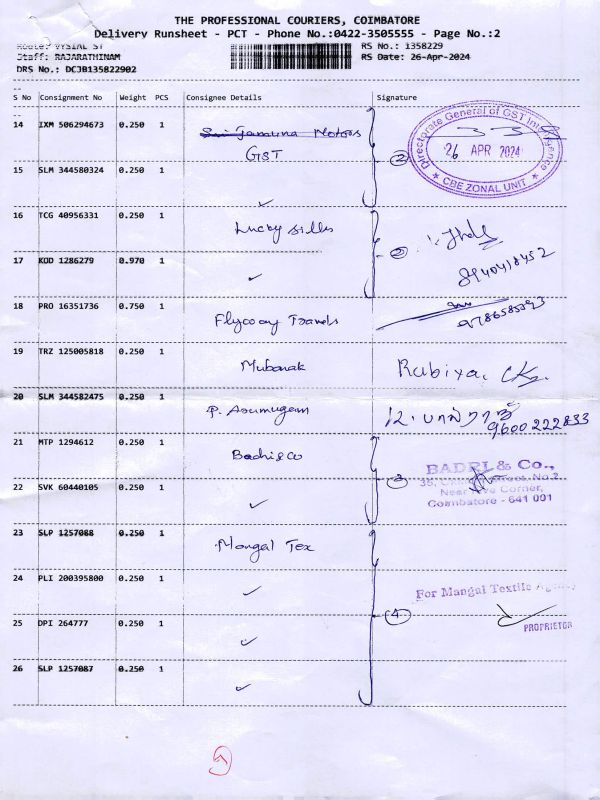 THE PROFESSIONAL COURIERS, COIMBATORE
Delivery Runsheet - PCT - Phone No.:0422-3505555 - Page No.:2
Route: VYSIAL ST RS No.: 1358229
Staff: RAJARATHINAM RS Date: 26-Apr-2024
DRS No.: DCJB135822902
S No Consignment No Weight PCS Consignee Details Signature
14 IXM 506294673 0.250 1 Sri Jamuna Motors
GST
Directorate General of GST Intelligence
26 APR 2024
CBE ZONAL UNIT
15 SLM 344580324 0.250 1 ✓ 2
16 TCG 40956331 0.250 1 Lucky silks
17 KOD 1286279 0.970 1 ✓ 2
8940418452
18 PRO 16351736 0.750 1 Flyway Travels
9786585393
19 TRZ 125005818 0.250 1 Mubarak Rubixa,
20 SLM 344582475 0.250 1 P. Arumugam
9600222833
21 MTP 1294612 0.250 1 Badri & co
22 SVK 60440105 0.250 1 ✓ 3
BADRI & Co.,
Near Five Corner,
Coimbatore - 641 001
23 SLP 1257088 0.250 1 Mangal Tex
24 PLI 200395800 0.250 1 ✓ 4
For Mangal Textile
PROPRIETOR
25 DPI 264777 0.250 1 ✓
26 SLP 1257087 0.250 1 ✓